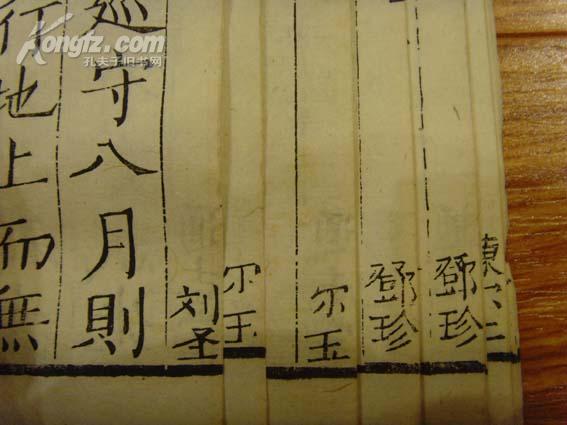 Kongfz.com
孔夫子旧书网
東
鄧珍
鄧珍
尔玉
尔玉
刘圣
廵守八月則
行地上而無